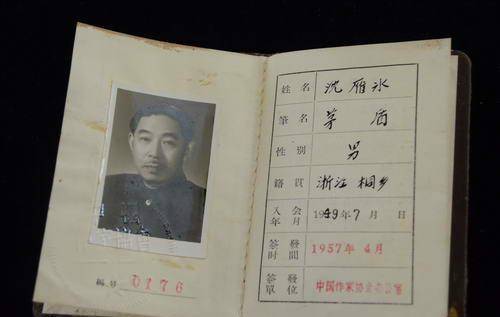 編号 0176
姓名 沈雁冰
筆名 茅盾
性别 男
籍貫 浙江桐乡
入会年月 1949年7月 日
签發时間 1957年4月
签發單位 中国作家协会办公室